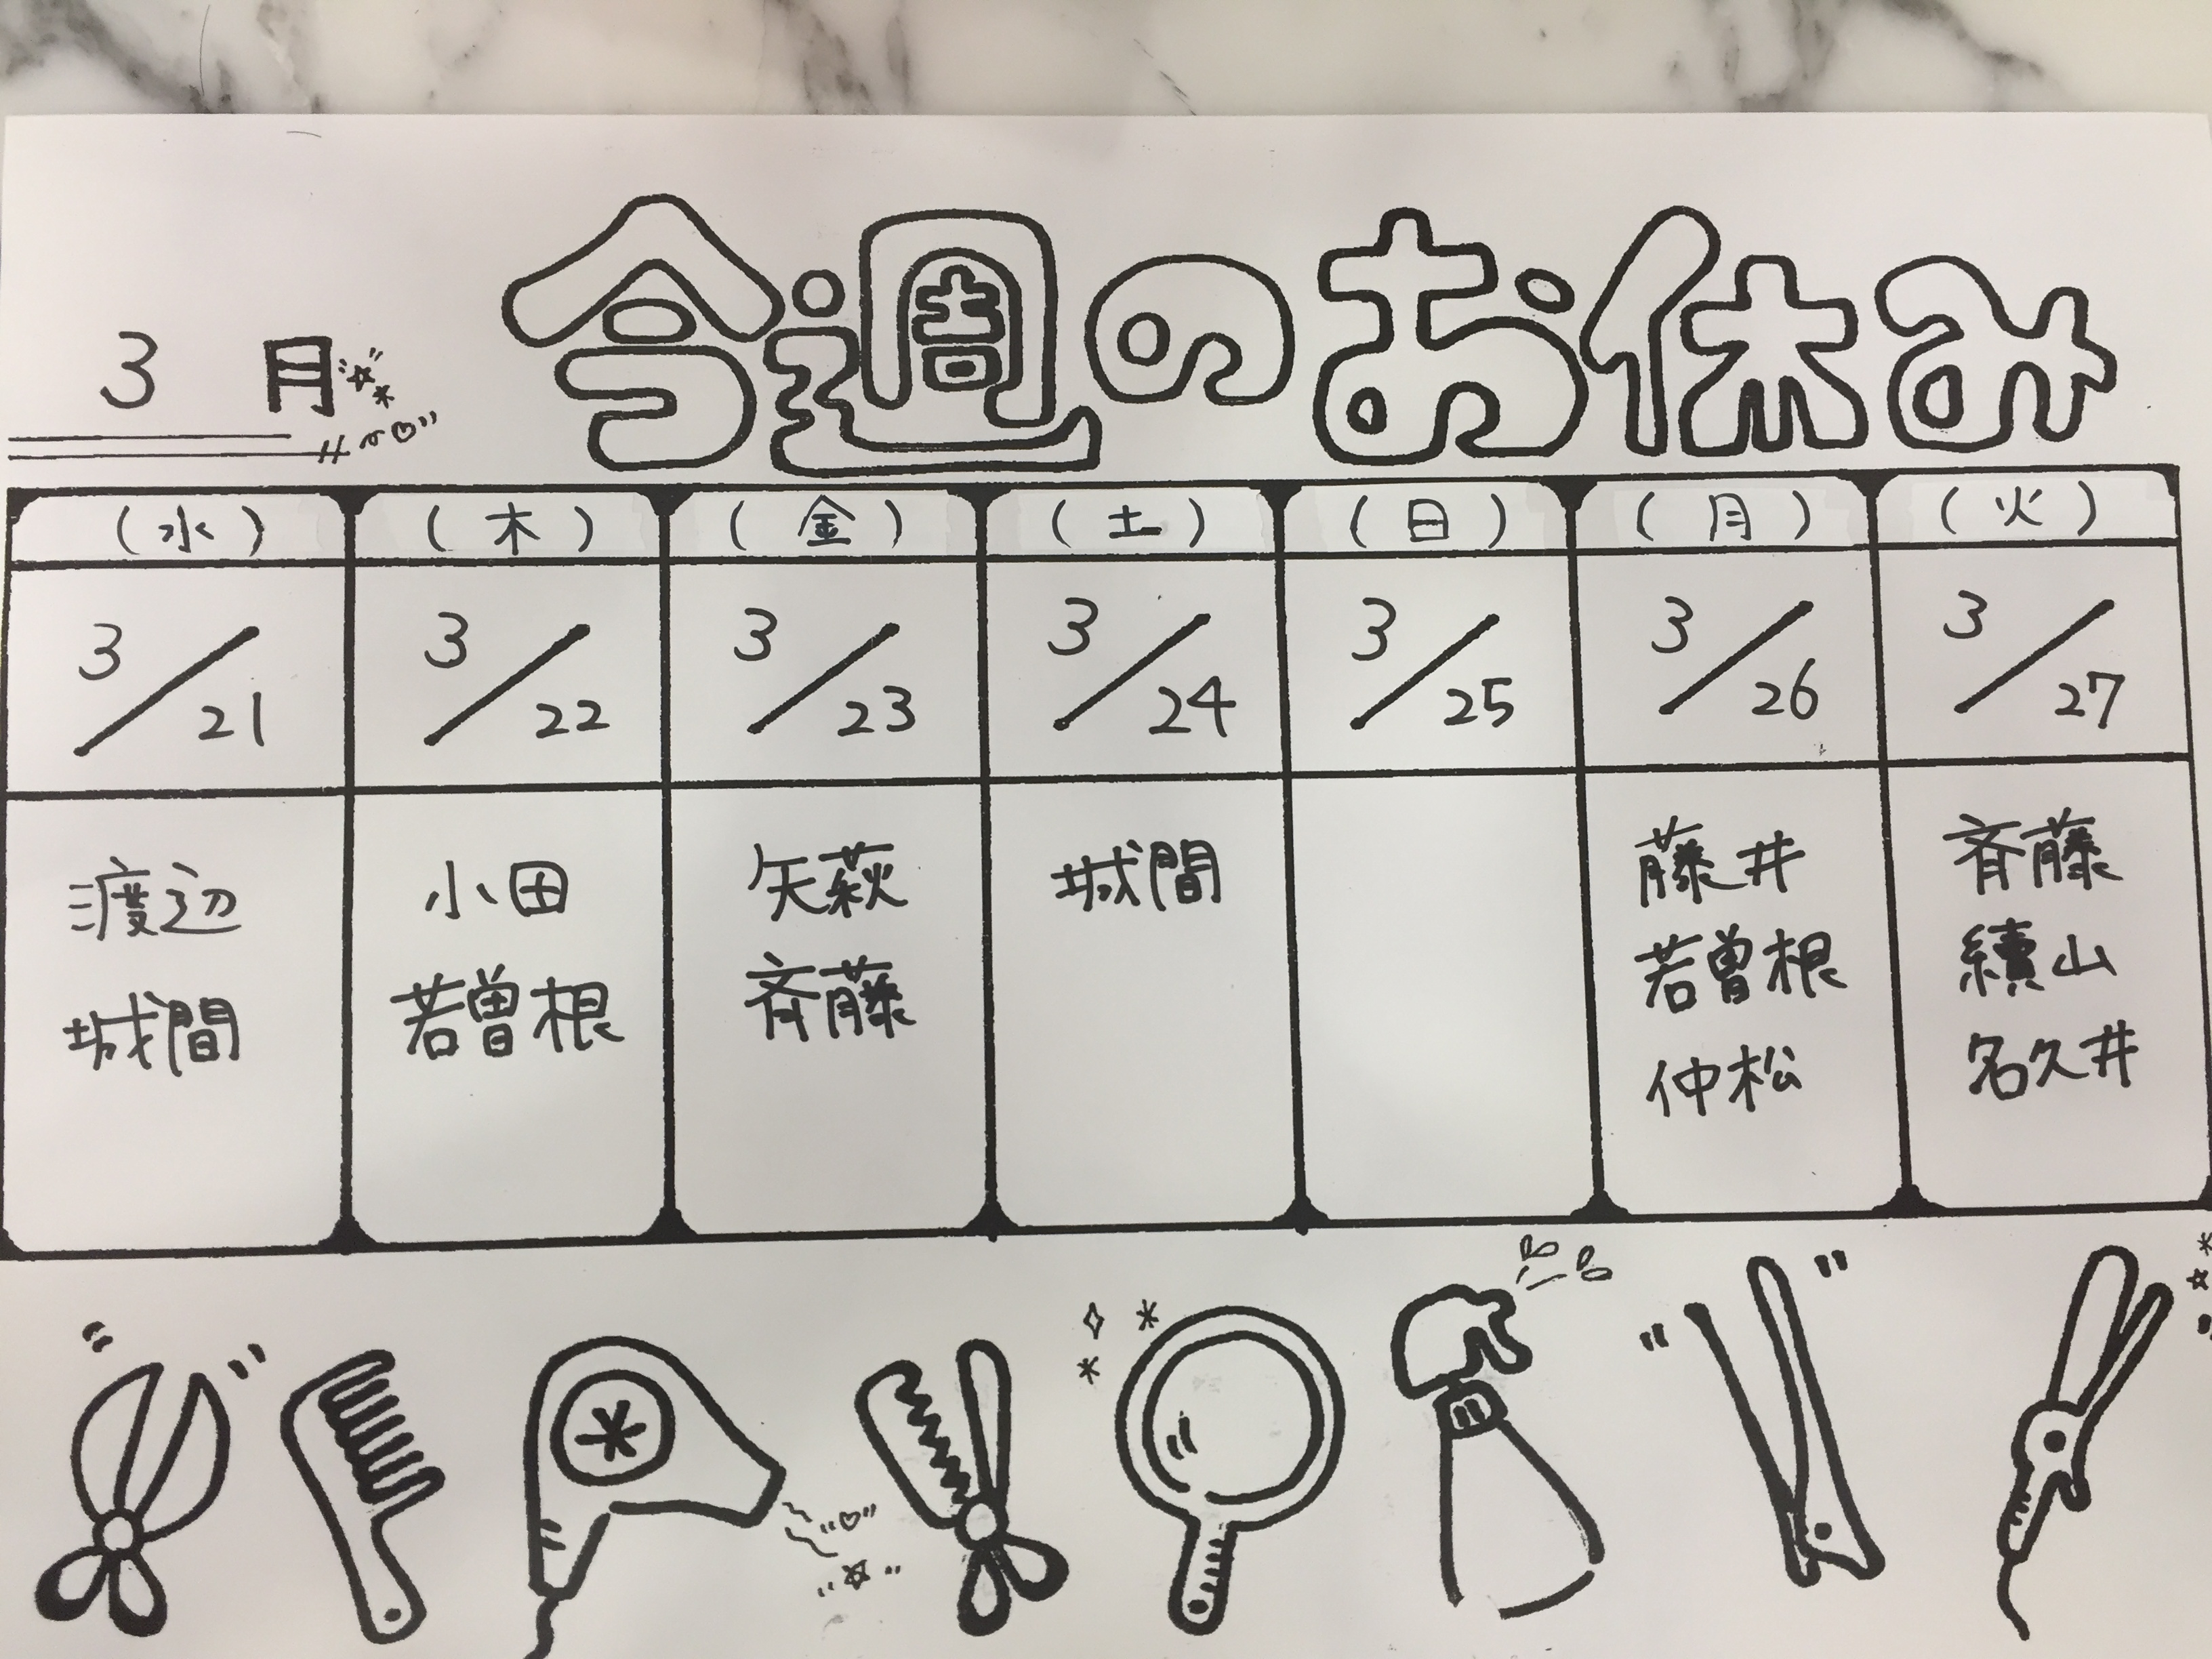 3月
今週のお休み
(水) (木) (金) (土) (日) (月) (火)
3/21 3/22 3/23 3/24 3/25 3/26 3/27
渡辺 小田 矢萩 城間 藤井 斉藤
城間 若曽根 斉藤 若曽根 續山
仲松 名久井